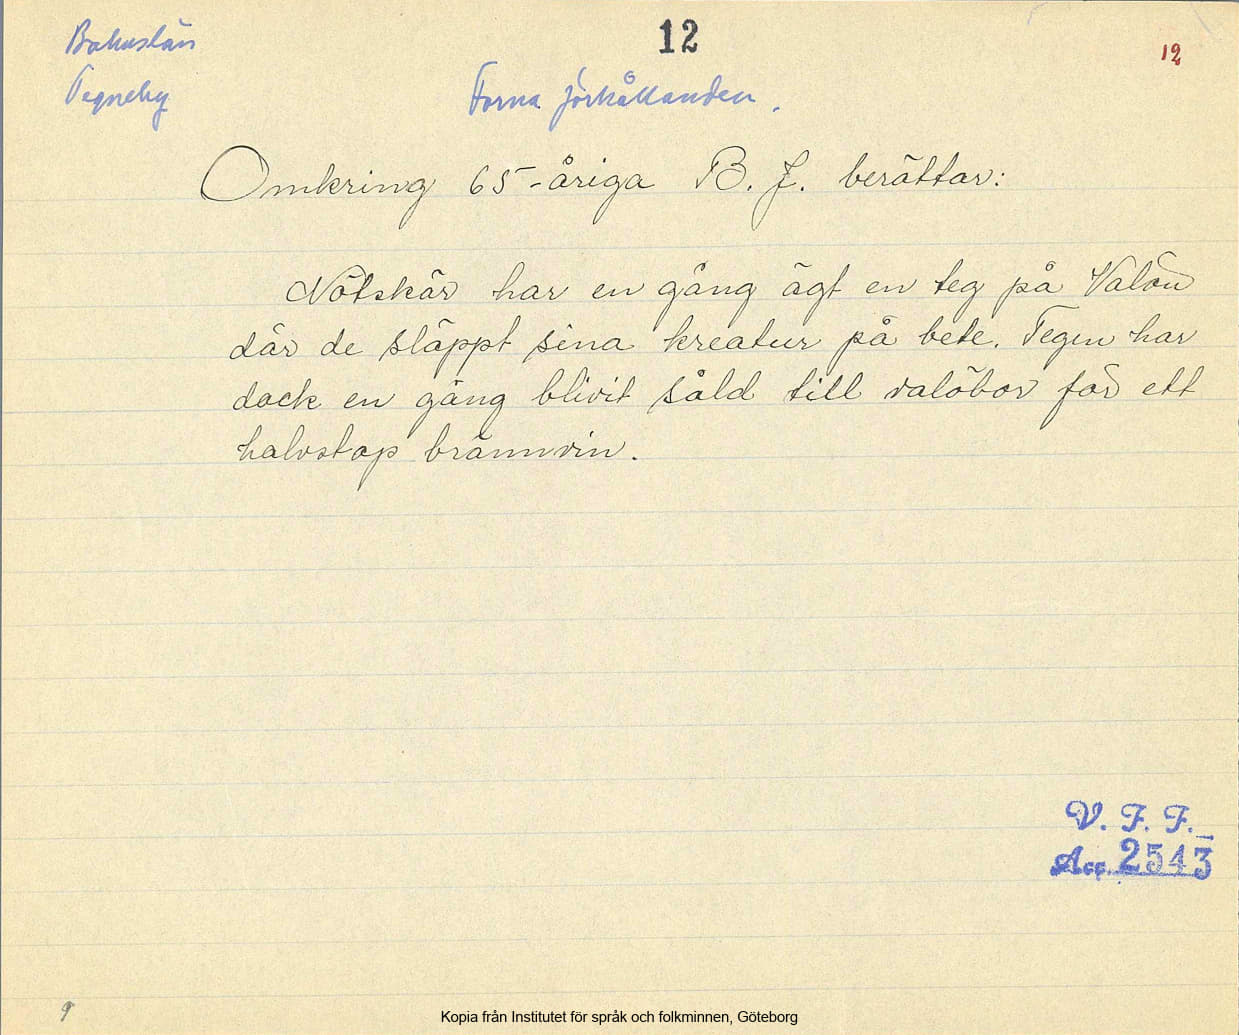 Bohuslän
12
12
Tegneby
Forna förhållanden.
Omkring 65-åriga B. J. berättar:
Nötskär har en gång ägt en teg på Valön
där de släppt sina kreatur på bete. Tegen har
dock en gång blivit såld till valöbor för ett
halvstop brännvin.
V. F. F.
Acc. 2543
9
Kopia från Institutet för språk och folkminnen, Göteborg